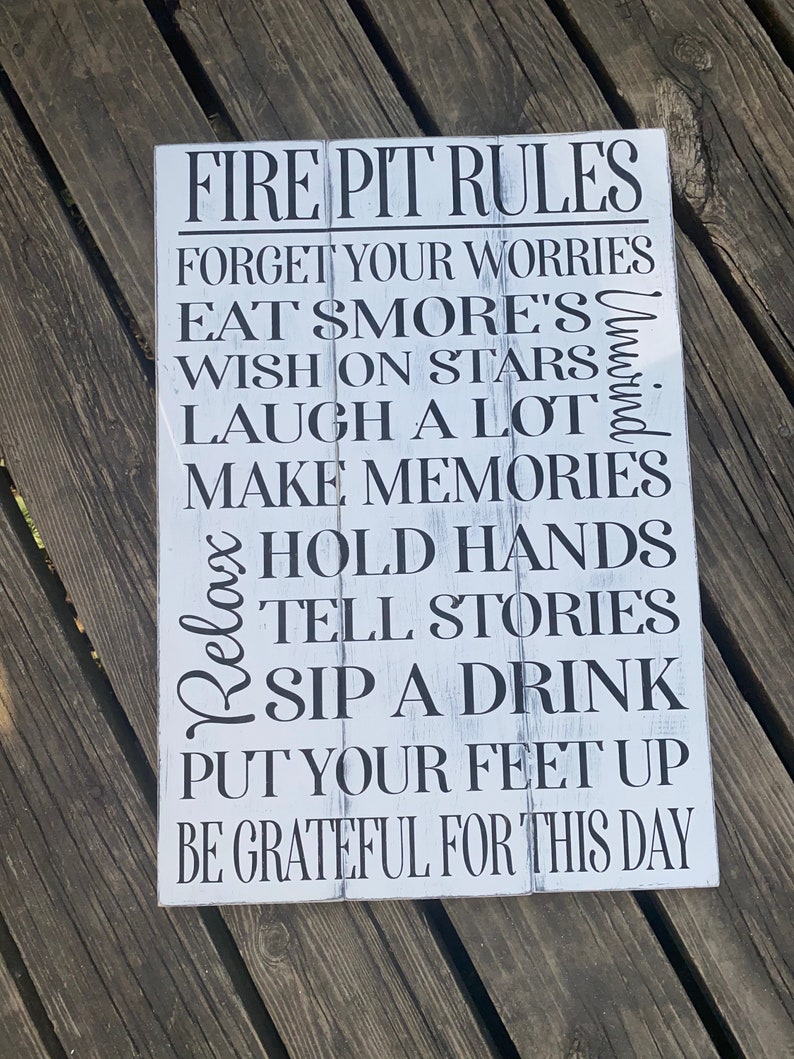 FIRE PIT RULES
FORGET YOUR WORRIES
EAT SMORE'S
Unwind
WISH ON STARS
LAUGH A LOT
MAKE MEMORIES
Relax
HOLD HANDS
TELL STORIES
SIP A DRINK
PUT YOUR FEET UP
BE GRATEFUL FOR THIS DAY